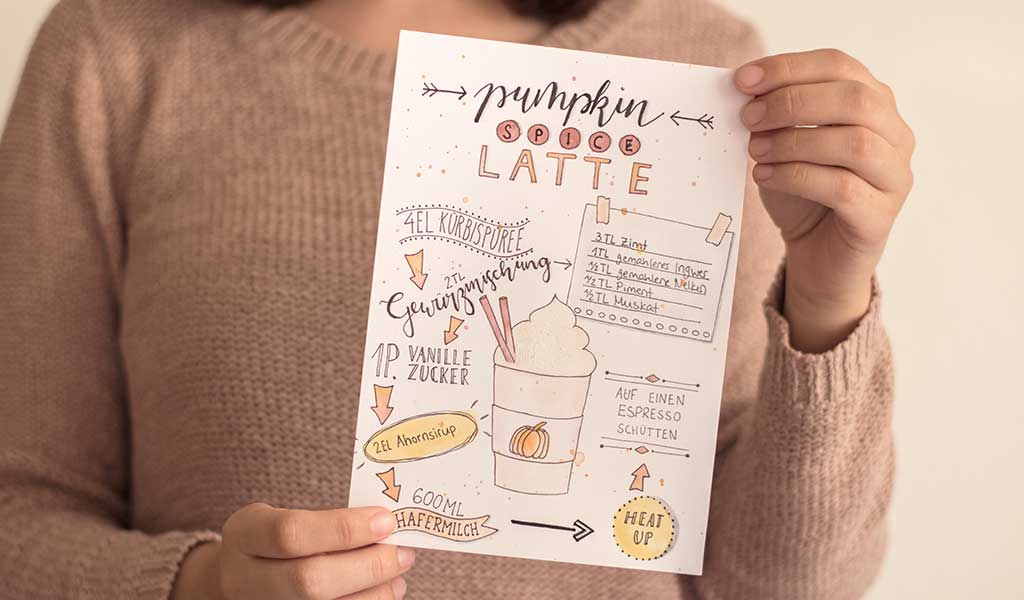 pumpkin
SPICE
LATTE
4EL KÜRBISPÜREE
2TL
Gewürzmischung
3TL Zimt
1TL gemahlener Ingwer
½TL gemahlene Nelken
½TL Piment
½TL Muskat
1P. VANILLE
ZUCKER
2EL Ahornsirup
600ML
HAFERMILCH
HEAT
UP
AUF EINEN
ESPRESSO
SCHÜTTEN